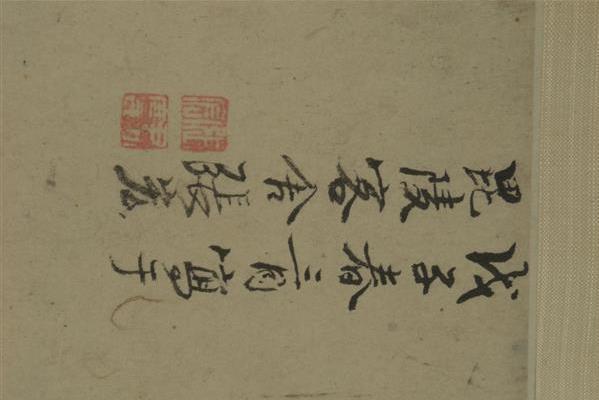 戊子春三月寫于
毘陵客舍張宏